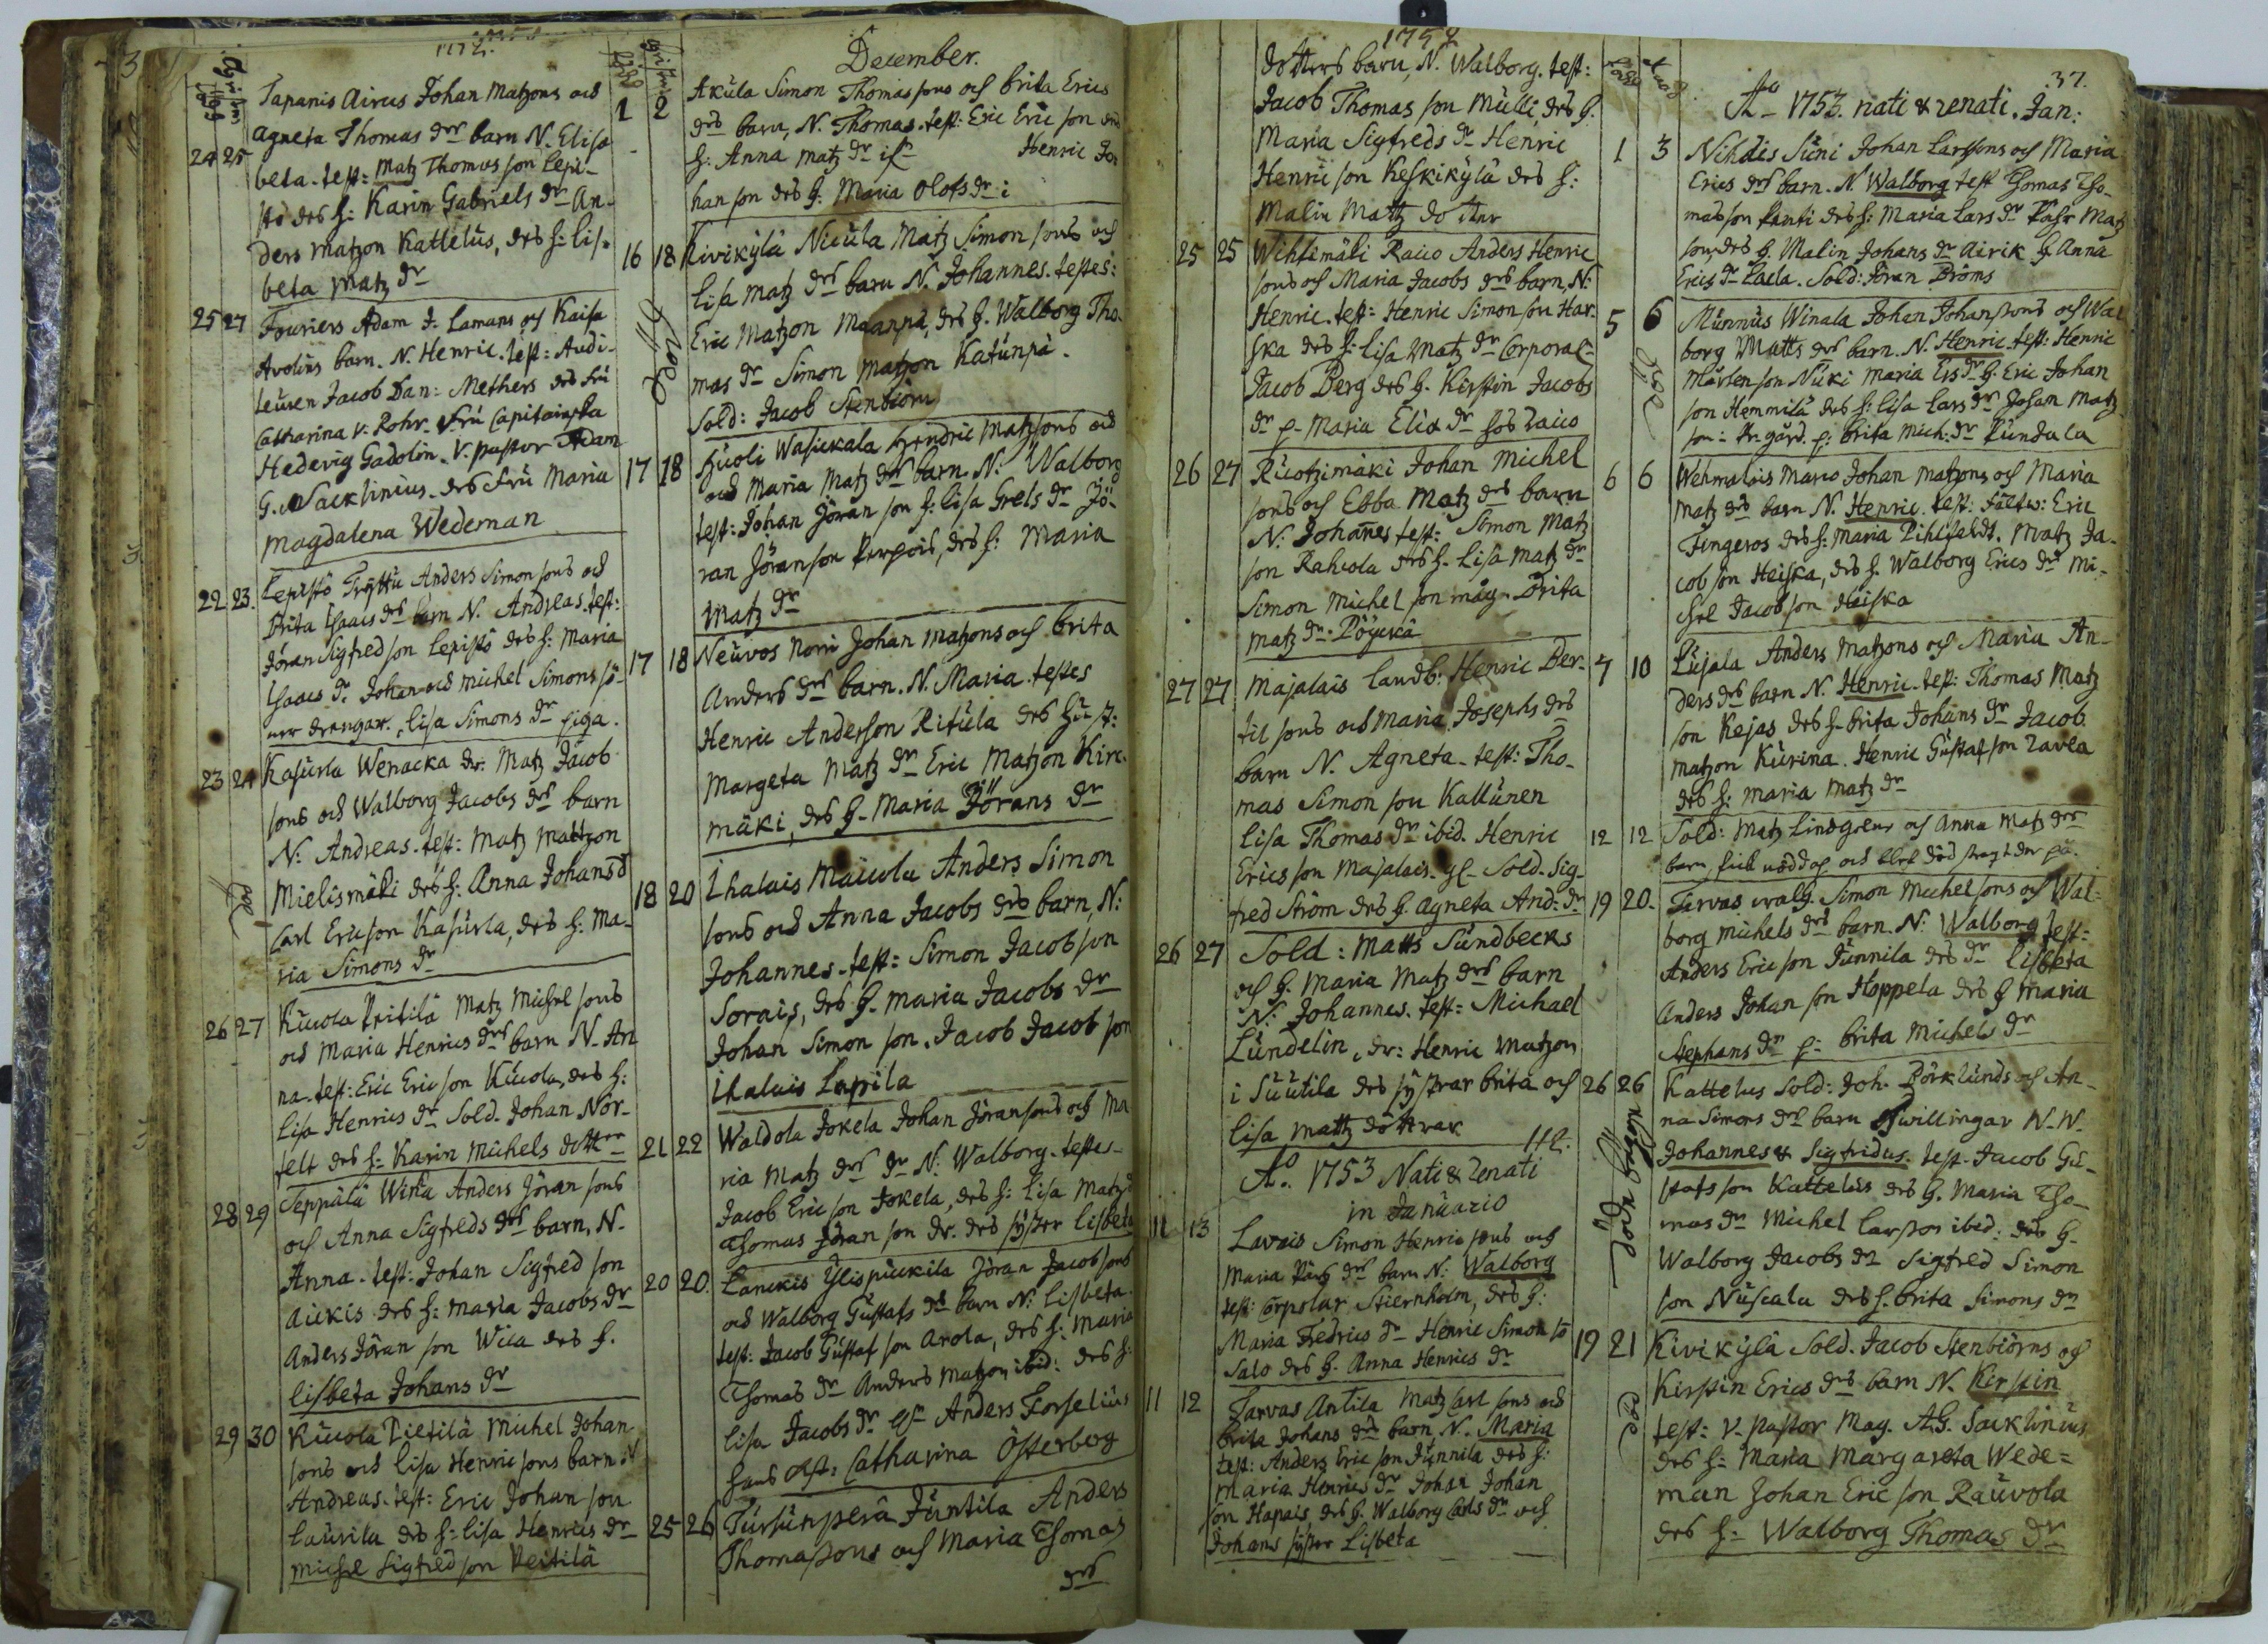 1752.
Tapanis Airus Johan Matzons och
Agneta Thomas dr barn N. Elisa
24 25 beta. test: Matz Thomas son Lepi-
stö des h: Karin Gabriels dr An-
ders Matzon Kattelus, des h: Lis-
beta Matz dr
25 27 Fouriers Adam J. Lamans och Kaisa
Avolins barn. N. Henric. test: Audi-
teuren Jacob Dan: Methers des fru
Catharina v. Rohr. Fru Capitainska
Hedevig Gadolin. V. pastor Adam
G. Sacklinius des Fru Maria
Magdalena Wedeman
22 23. Lepistö Tryttu Anders Simon sons och
Brita Isaacs drs barn N. Andreas. test:
Jöran Sigfred son Lepistö des h: Maria
Isaacs dr Johan och Michel Simons sö-
ner drengar. Lisa Simons dr piga.
23 24 Kasurla Wenacka dr: Matz Jacob
sons och Walborg Jacobs drs barn
N: Andreas. test: Matz Mattzon
Mielismäki des h: Anna Johans d
Carl Ericson Kasurla, des h: Ma-
ria Simons dr
död
26 27 Kuuola Peitilä Matz Michel sons
och Maria Henrics drs barn N. An
na. test: Eric Eric son Kuuola, des h:
Lisa Henrics dr Sold. Johan Nor-
felt des h: Karin Michels dotter
28 29 Seppälä Wika Anders Jöran sons
och Anna Sigfreds drs barn, N.
Anna. test: Johan Sigfred son
Aukis des h: Maria Jacobs dr
Anders Jöran son Wica des h.
Lisbeta Johans dr
29 30 Kuuola Pietilä Michel Johan
sons och Lisa Henric sons barn N
Andreas. test: Eric Johan son
Laurila des h: Lisa Henrics dr
Michel Sigfred son Peitilä
December.
1 2 Akula Simon Thomas sons och Brita Erics
drs barn, N. Thomas. test: Eric Eric son des
h: Anna Matz dr Henric Jo-
han son des h: Maria Olofs dr i
16 18 Kivikylä Nicula Matz Simon sons och
Lisa Matz drs barn N. Johannes. testes:
Eric Matzon Maanpä, des h. Walborg Tho-
mas dr Simon Matzon Katunpä.
Sold: Jacob Stenbiörn
17 18 Huoli Wasickala Hendric Matzsons och
och Maria Matz drs barn. N: Walborg
test: Johan Jöran son h: Lisa Grels dr Jö-
ran Jöranson Perhois, des h: Maria
Matz dr
17 18 Neuvos Norri Johan Matzons och Brita
Anders drs barn. N. Maria. testes
Henric Anderson Ritula des hust:
Margeta Matz dr Eric Matzon Kirc-
mäki, des h. Maria Jörans dr
18 20 Ihalais Maicola Anders Simon
sons och Anna Jacobs drs barn, N:
Johannes. test: Simon Jacobson
Sorais, des h. Maria Jacobs dr
Johan Simon son. Jacob Jacob son
Ihalais Lapila
21 22 Waldola Jokela Johan Jöransons och Ma
ria Matz drs dr N: Walborg. testes-
Jacob Eric son Jokela, des h: Lisa Matz d
Thomas Jöran son dr. des syster Lisbeta
20 20. Lanckis Ylispickila Jöran Jacob sons
och Walborg Gustafs drs barn N: Lisbeta.
test: Jacob Gustaf son Arola, des h: Maria
Thomas dr Anders Matzon ibid: des h:
Lisa Jacobs dr Anders Forselius
hans Catharina Österberg
25 26 Tursunperä Juntila Anders
Thomassons och Maria Thomas
drs
1752
dotters barn, N. Walborg. test:
Jacob Thomas son Mulli, des h.
Maria Sigfreds dr Henric
Henric son Keskikylä des h:
Malin Mattz dotter
25 25 Wihtimäki Raico Anders Henric
sons och Maria Jacobs drs barn, N:
Henric. test: Henric Simon son Har-
ska des h: Lisa Matz dr Corporal
Jacob Berg des h. Kirstin Jacobs
dr p. Maria Elia dr hos Raico
26 27 Ruotzimäki Johan Michel
sons och Ebba Matz drs barn
N: Johannes test: Simon Matz
son Rahcola des h. Lisa Matz dr
Simon Michel son måg. Brita
Matz dr. Pöyckä
27 27 Majalais Landb: Henric Ber-
til sons och Maria Josephs drs
barn N. Agneta. test: Tho-
mas Simon son Kallunen
Lisa Thomas dr ibid. Henric
Erics son Majalais. Sold. Sig-
fred Ström des h. Agneta And: dr
26 27 Sold: Matts Sundbecks
och h. Maria Matz drs barn
N: Johannes. test: Michael
Lundelin, dr: Henric Matzon
i Suutila des systrar Brita och
Lisa Mattz döttrar
112.
Ao. 1753 Nati & Renati
in Januario
11 13 Lavais Simon Henric sons och
Maria Pärs drs barn N: Walborg
test: Corpolar Stiernholm, des h:
Maria Fedrics dr Henric Simon so
Salo des h. Anna Henrics dr
11 12 Tarvas Antila Matz Carl sons och
Brita Johans drs barn N. Maria
test: Anders Eric son Junnila des h:
Maria Henrics dr Johan Johan
son Hapais, des h. Walborg Carls dr och
Johans syster Lisbeta
37.
Ao 1753. nati & renati. Jan:
1 3 Nihdis Suni Johan Larssons och Maria
Erics drs barn. N. Walborg test Thomas Tho-
masson Panti des h: Maria Lars dr Matz
son, des h. Malin Johans dr Airik h Anna
Erics dr Laela. Sold: Jöran Bröms
5 6 Munnus Winala Johan Johansons och Wal
borg Matts drs barn. N. Henric. test: Henric
Mårten son Nuki Maria Ers dr h. Eric Johan
son Hemmilä des h: Lisa Lars dr Johan Matz
son i Pr: gård. p: Brita Mich: dr Pundala
död
6 6 Wehmalais Marco Johan Matzons och Maria
Matz drs barn N. Henric. test: Fältw: Eric
Fingeros des h: Maria Pihlfeldt. Matz Ja-
cob son Heiska, des h. Walborg Erics dr Mi-
chel Jacobson Heiska
7 10 Lujala Anders Matzons och Maria An-
ders drs barn N. Henric. test: Thomas Matz
son Kejas des h. Brita Johans dr Jacob
Matzon Kurina. Henric Gustafson Lavea
des h: Maria Matz dr
12 12 Sold: Matz Lindgrens och Anna Matz drs
barn, fick nöddop och blef död strax der på.
19 20. Tarvas Simon Michelsons och Wal-
borg Michels drs barn. N: Walborg test:
Anders Eric son Junnila des dr Lisbeta
Anders Johan son Hoppela des h Maria
Stephans dr p: Brita Michels dr
26 26 Kattelus Sold: Joh. Börklunds och An-
na Simons drs barn twillingar N. N.
Johannes & Sigfridus. test. Jacob Gu-
stafs son Kattelus des h. Maria Tho-
mas dr Michel Larsson ibid: des h.
Walborg Jacobs dr Sigfred Simon
son Nuscala des h. Brita Simons dr
19 21 Kivikylä Sold. Jacob Stenbiörns och
Kirstin Erics drs barn N. Kirstin
test: V. Pastor Mag. AG. Sacklinius
des h: Maria Margareta Wede=
man Johan Eric son Rauvola
des h: Walborg Thomas dr